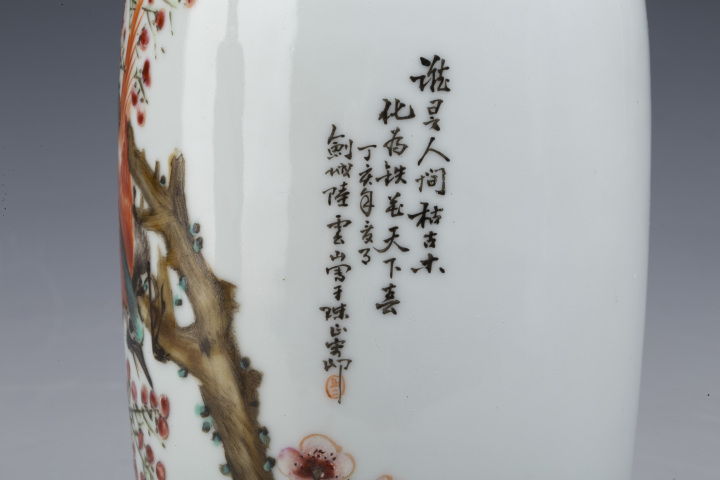 誰是人間枯古木
化為鉄花天下春
丁亥年夏月
劍城陸雲山寫于珠山